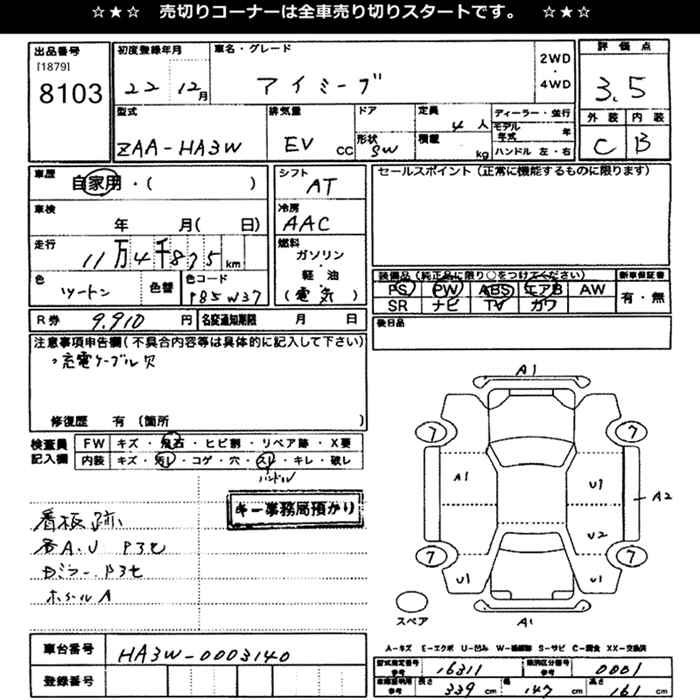 ☆★☆ 売切りコーナーは全車売り切りスタートです。 ☆★☆
出品番号
[1879]
8103
初度登録年月
22 12月
車名・グレード
アイミーブ
2WD
・
4WD
評価点
3.5
外装 内装
C B
型式
ZAA-HA3W
排気量
EV CC
ドア
形状
SW
定員
4人
積載
kg
ディーラー・並行
モデル年式 年
ハンドル 左・右
車歴
自家用・( )
車検
年 月( 日)
走行
11万4千875km
色
ツートン
色替
色コード
P85W37
シフト
AT
冷房
AAC
燃料
ガソリン
・
軽油
(電気)
セールスポイント(正常に機能するものに限ります)
装備品(純正品に限り○をつけてください)
PS PW ABS エアB AW
SR ナビ TV カワ
新車保証書
有・無
R券
9,910円
名変通知期限 月 日
後日品
注意事項申告欄(不具合内容等は具体的に記入して下さい)
・充電ケーブル欠
修復歴 有(箇所 )
検査員記入欄
FW キズ・飛石・ヒビ割・リペア跡・X要
内装 キズ・汚れ・コゲ・穴・スレ・キレ・破レ
ハンドル
キー事務局預かり
看板跡
各A.U P3セ
ホイールA
A1
7
7
A1
U1
A2
U2
7
7
U1
U1
A1
スペア
A-キズ E-エクボ U-凹み W-補修跡 S-サビ C-腐食 XX-交換済
車台番号
HA3W-0003140
登録番号
型式指定番号
参考
16311
類別区分番号
参考
0001
車両寸法
参考
長さ
339cm
幅
147cm
高さ
161cm